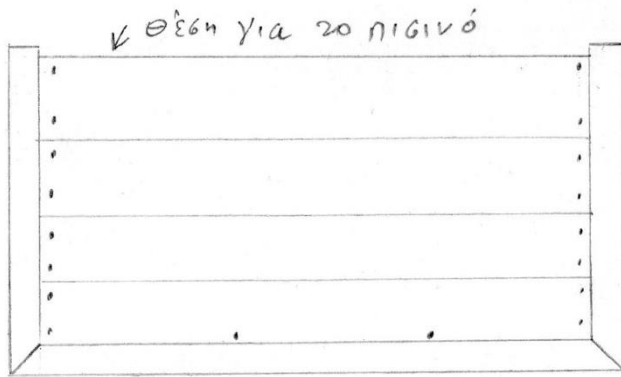 θέση για το πισινό